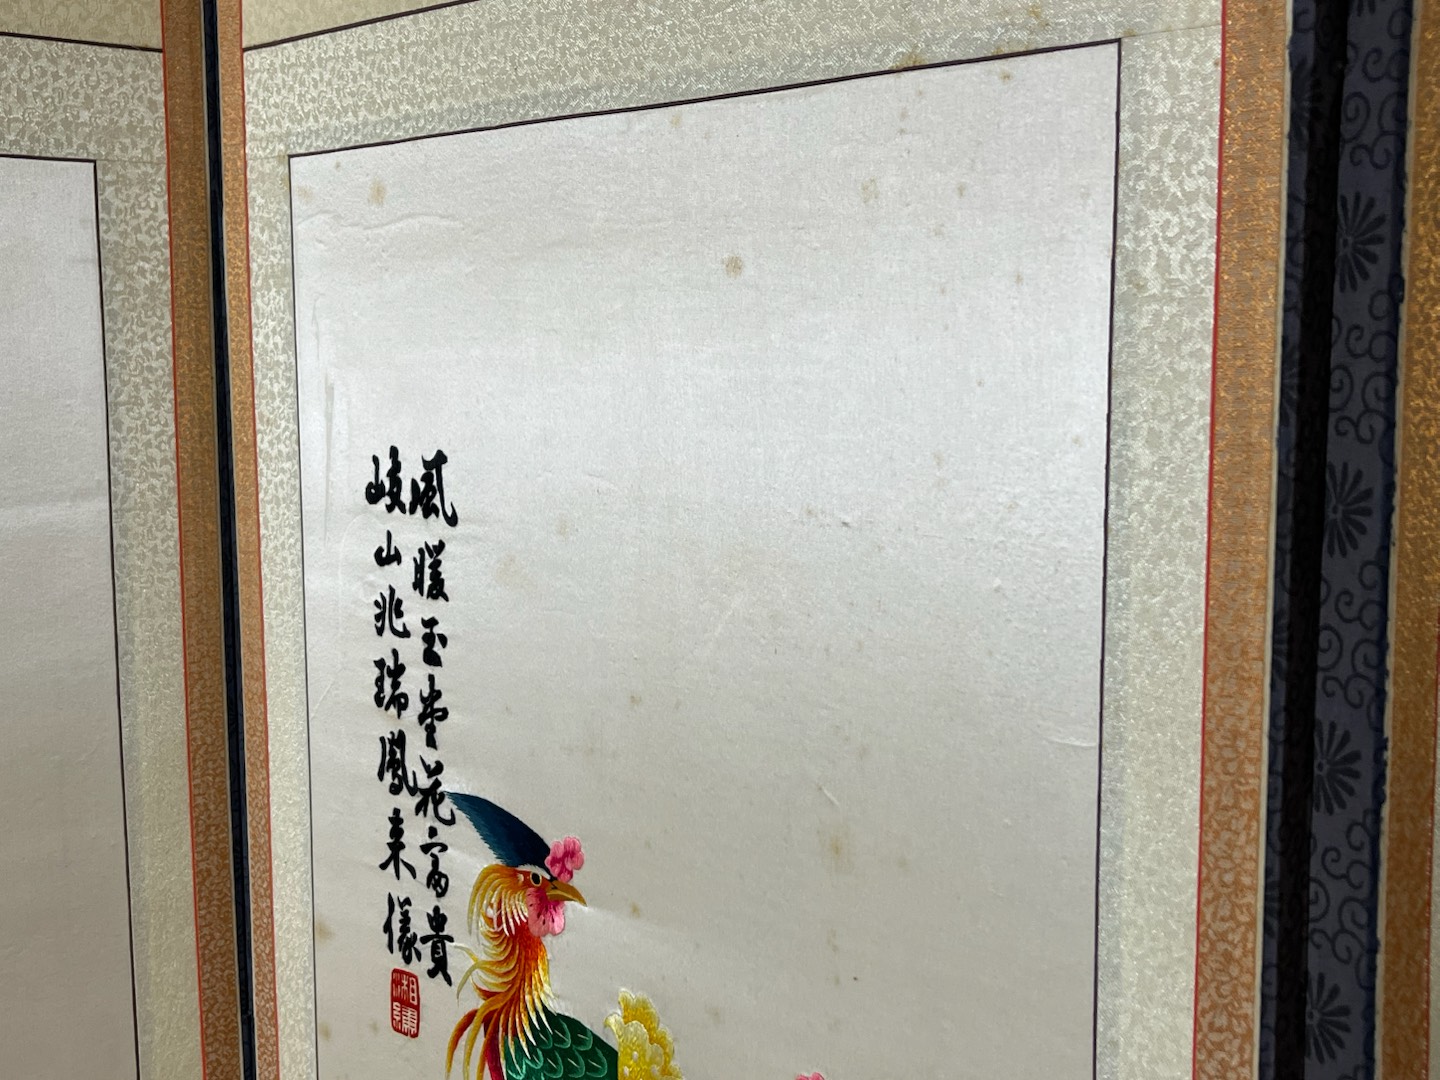 風暖玉堂花富貴
岐山兆瑞鳳來儀
湘繡